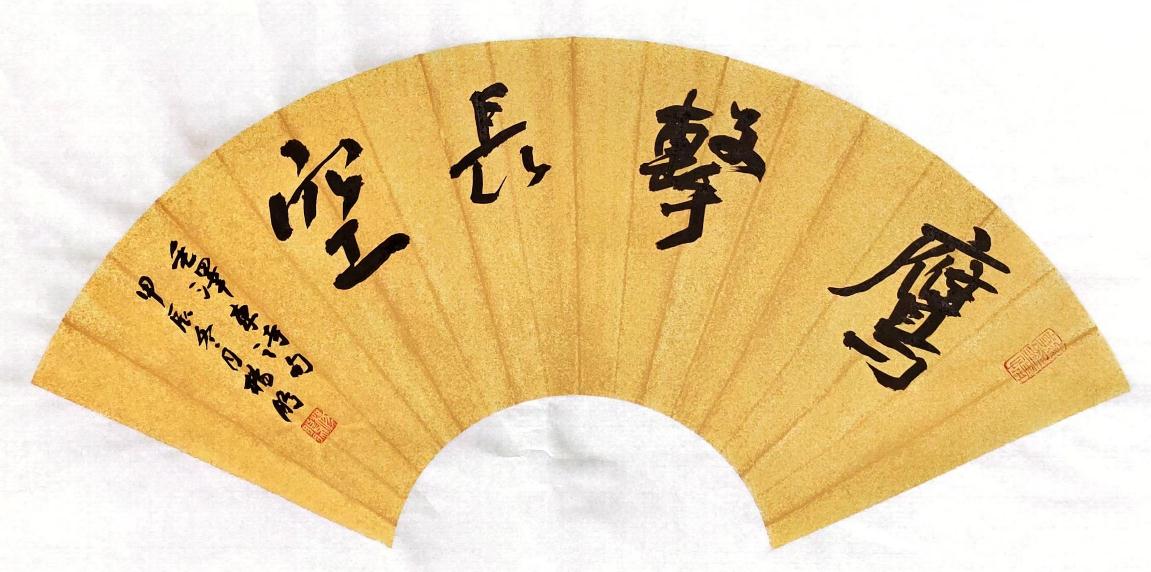 鷹擊長空
毛澤東詩句
甲辰冬月楊